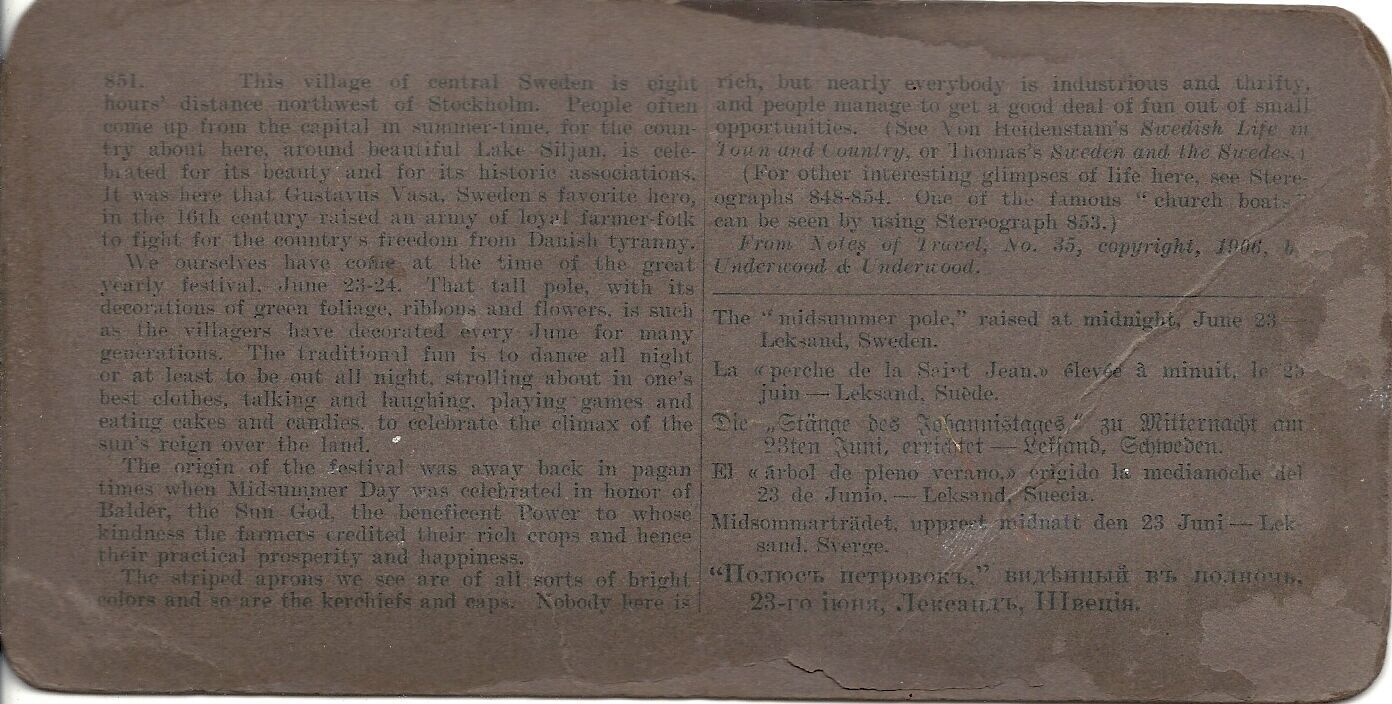 851. This village of central Sweden is eight
hours' distance northwest of Stockholm. People often
come up from the capital in summer-time, for the coun-
try about here, around beautiful Lake Siljan, is cele-
brated for its beauty and for its historic associations.
It was here that Gustavus Vasa, Sweden's favorite hero,
in the 16th century raised an army of loyal farmer-folk
to fight for the country's freedom from Danish tyranny.
We ourselves have come at the time of the great
yearly festival, June 23-24. That tall pole, with its
decorations of green foliage, ribbons and flowers, is such
as the villagers have decorated every June for many
generations. The traditional fun is to dance all night
or at least to be out all night, strolling about in one's
best clothes, talking and laughing, playing games and
eating cakes and candies, to celebrate the climax of the
sun's reign over the land.
The origin of the festival was away back in pagan
times when Midsummer Day was celebrated in honor of
Balder, the Sun God, the beneficent Power to whose
kindness the farmers credited their rich crops and hence
their practical prosperity and happiness.
The striped aprons we see are of all sorts of bright
colors and so are the kerchiefs and caps. Nobody here is
rich, but nearly everybody is industrious and thrifty,
and people manage to get a good deal of fun out of small
opportunities. (See Von Heidenstam's Swedish Life in
Town and Country, or Thomas's Sweden and the Swedes.)
(For other interesting glimpses of life here, see Stere-
ographs 848-854. One of the famous "church boats"
can be seen by using Stereograph 853.)
From Notes of Travel, No. 35, copyright, 1906, b
Underwood & Underwood.
The "midsummer pole," raised at midnight, June 23 —
Leksand, Sweden.
La « perche de la Saint Jean,» élevée à minuit, le 23
juin — Leksand, Suède.
Die „Stänge des Johannistages,“ zu Mitternacht am
23ten Juni errichtet — Leksand, Schweden.
El « árbol de pleno verano,» erigido la medianoche del
23 de Junio. — Leksand, Suecia.
Midsommarträdet, upprest midnatt den 23 Juni — Lek-
sand, Sverge.
“Полюсъ петровокъ,” видѣнный въ полночь,
23-го іюня, Лександъ, Швеція.